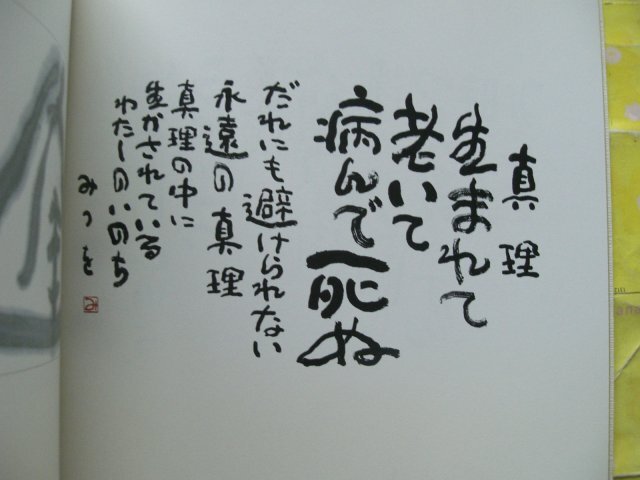 真理
生まれて
老いて
病んで死ぬ
だれにも避けられない
永遠の真理
真理の中に
生かされている
わたしのいのち
みつを